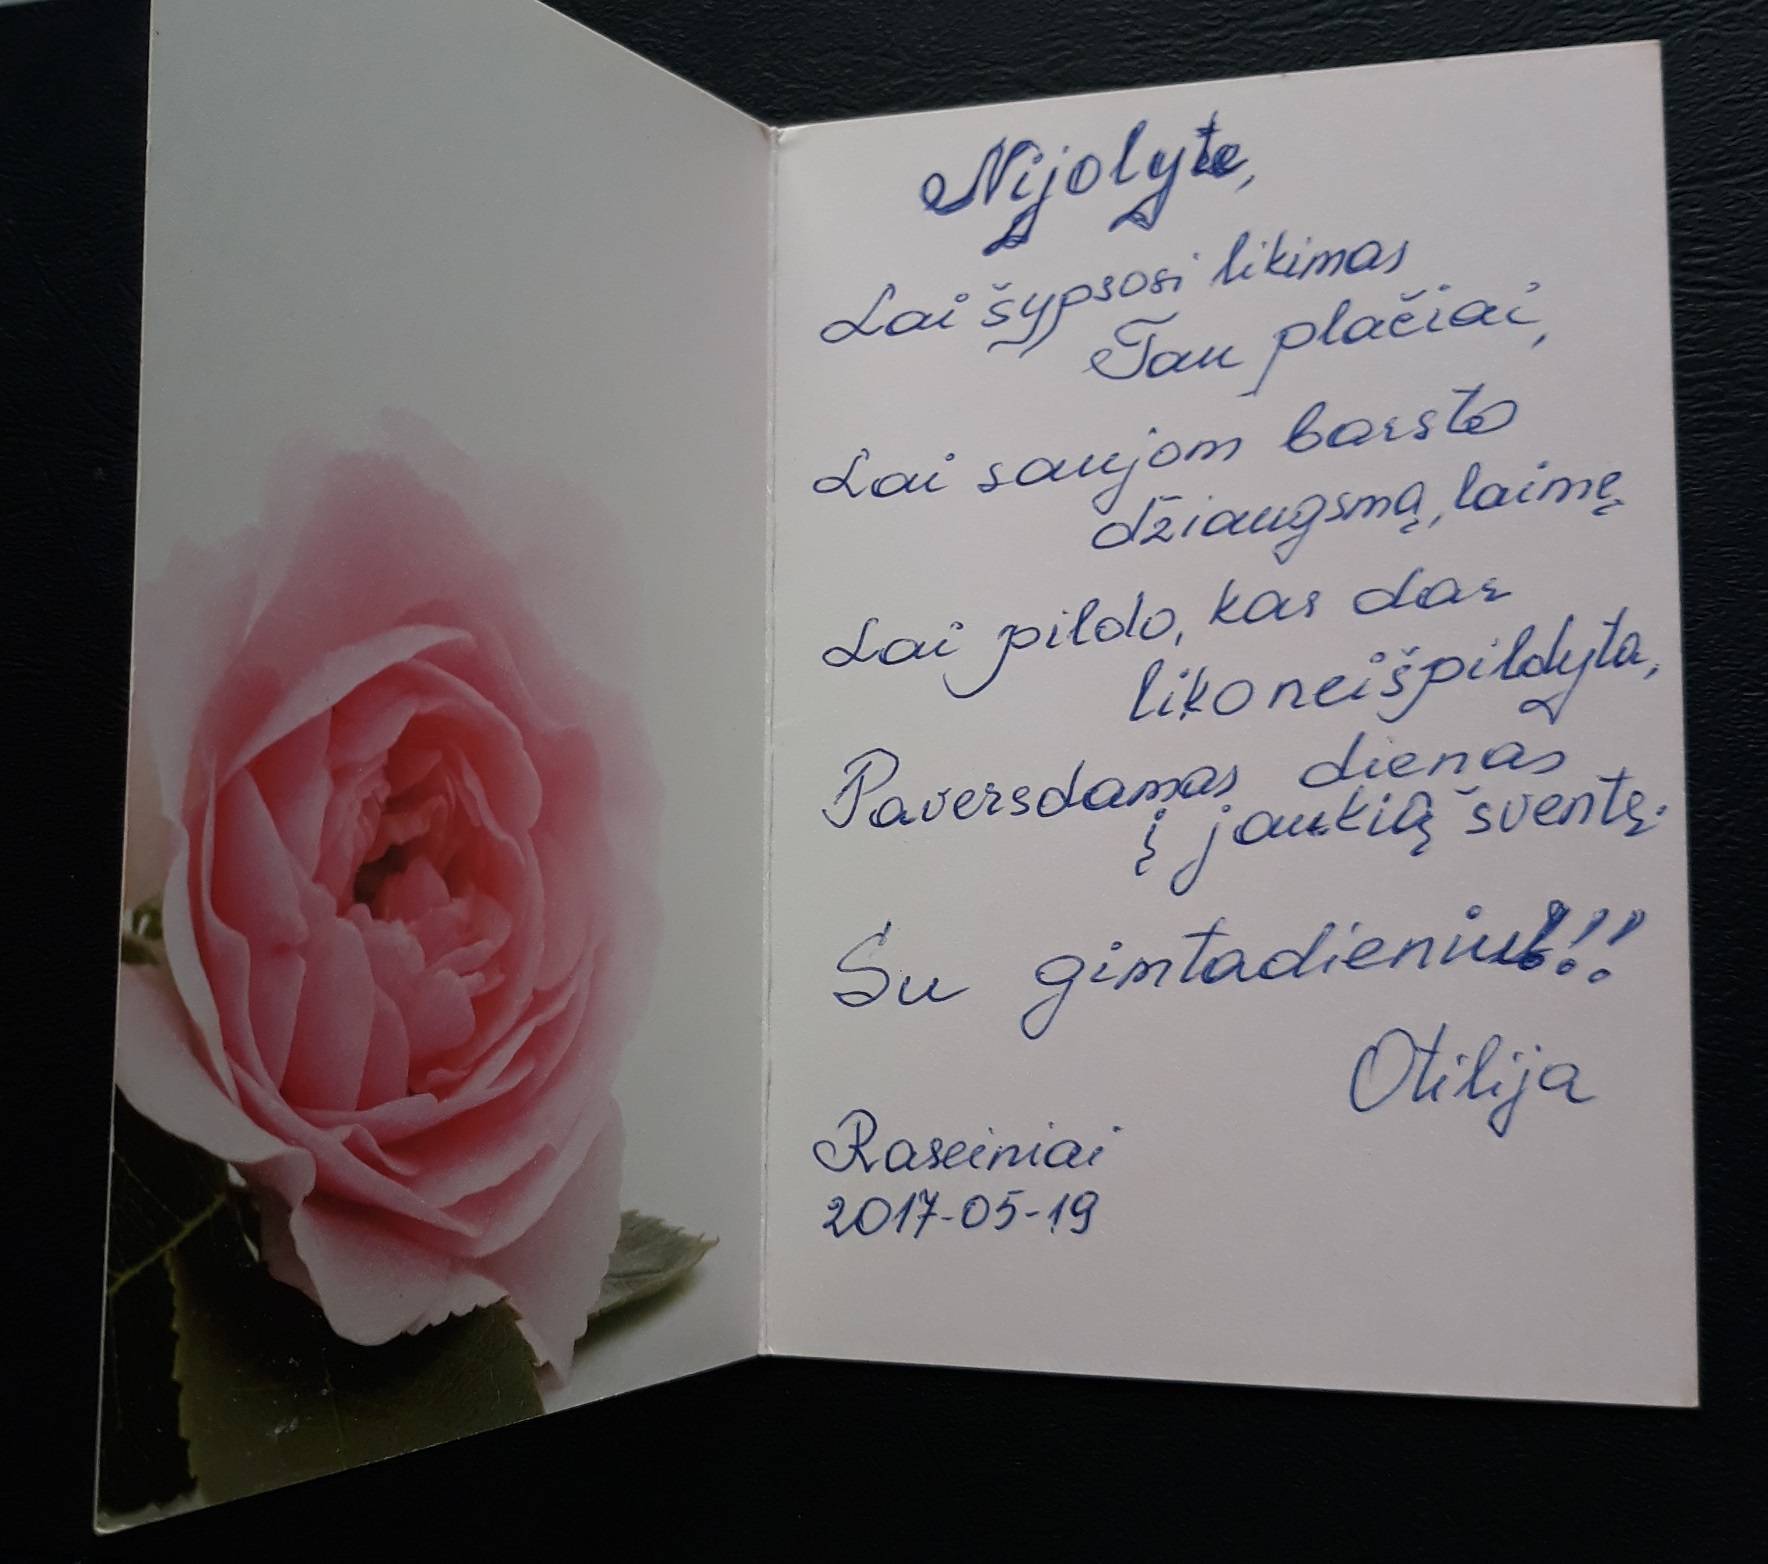 Nijolyte,
Lai šypsosi likimas
Tau plačiai,
Lai saujom barsto
džiaugsmą, laimę
Lai pildo, kas dar
liko neišpildyta,
Paversdamas dienas
į jaukią šventę.
Su gimtadieniu!!!
Otilija
Raseiniai
2017-05-19